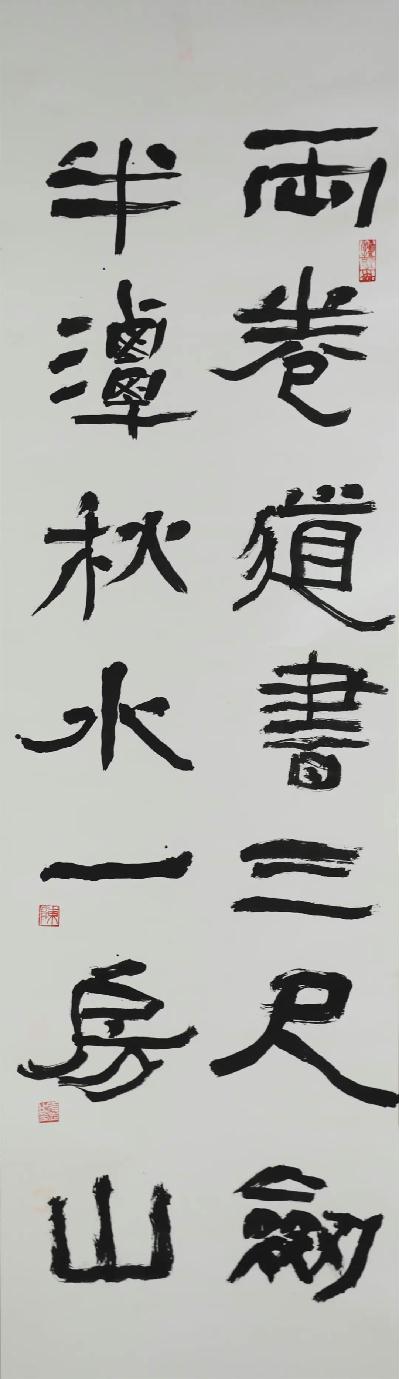 兩卷道書三尺劍
半潭秋水一房山